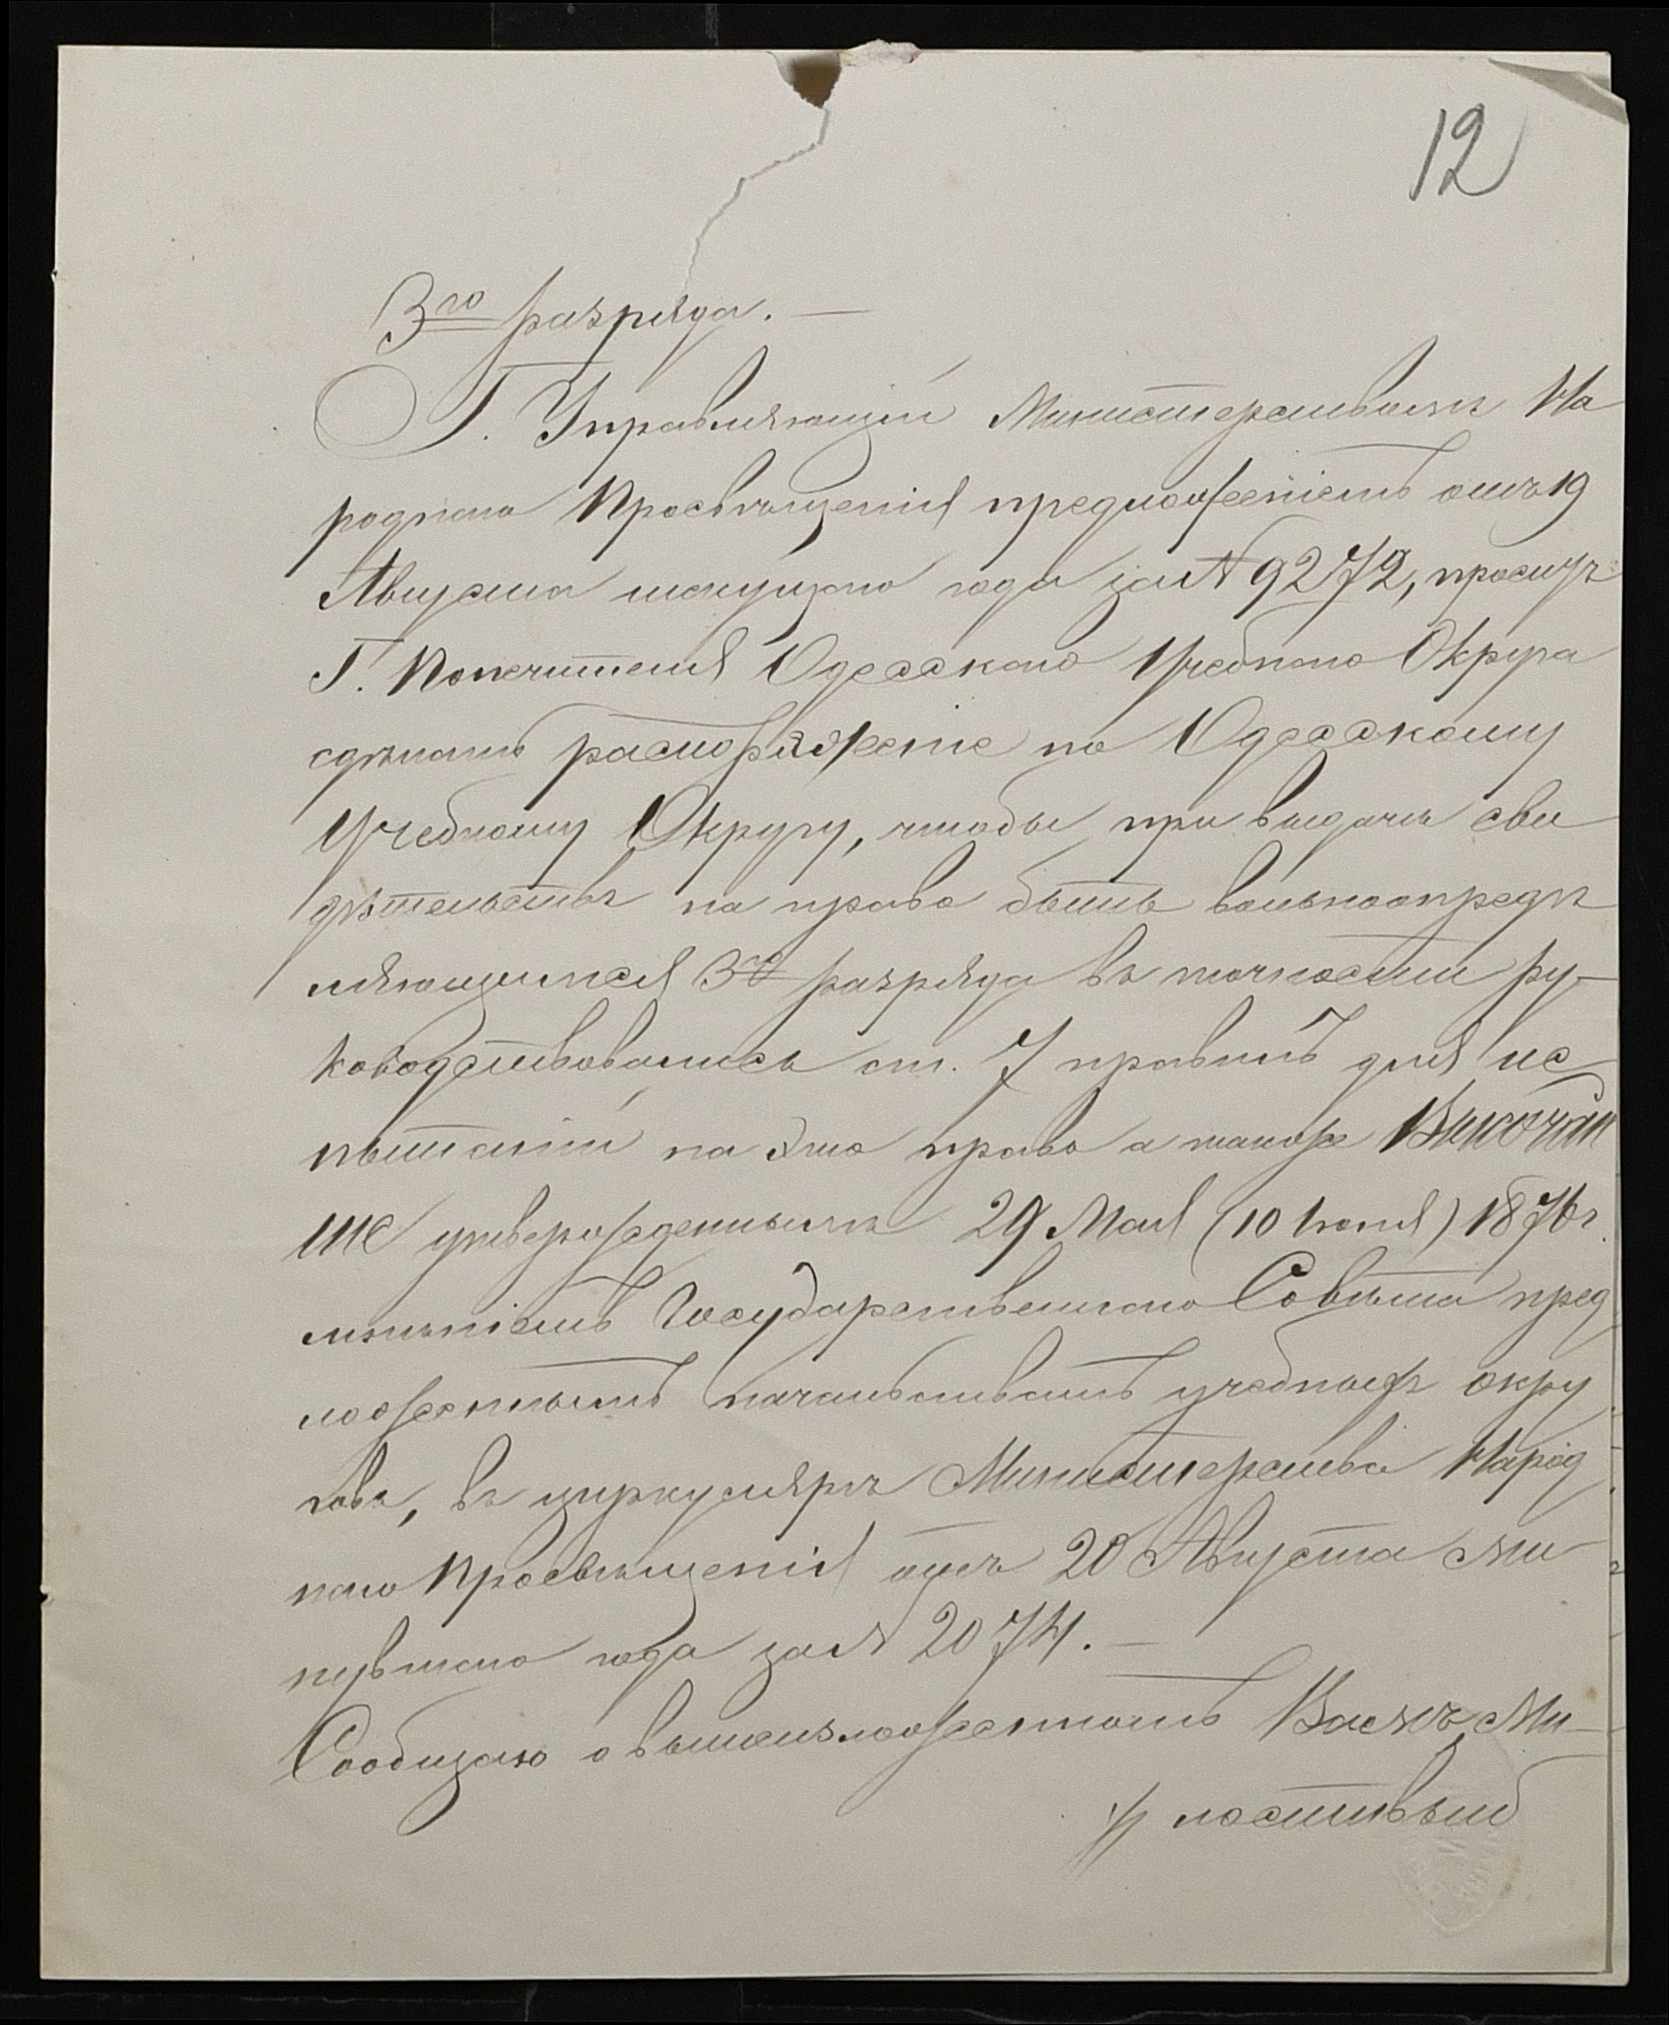 12
3го разряда. —
Г. Управляющій Министерствомъ На
роднаго Просвѣщенія предложеніемъ отъ 19
Августа текущаго года за № 9272, просилъ
Г. Попечителя Одесскаго Учебнаго Округа
сдѣлать распоряженіе по Одесскому
Учебному Округу, чтобы при выдачѣ сви
дѣтельствъ на право быть вольноопредѣ
ляющимся 3го разряда въ точности ру-
ководствовались ст. 7 правилъ для ис
пытаній на это право а также Высочай
ше утвержденнымъ 29 Мая (10 Іюня) 1876 г.
мнѣніемъ Государственнаго Совѣта пред
ложеннымъ начальствамъ учебныхъ окру
говъ, въ циркулярѣ Министерства Народ
наго Просвѣщенія отъ 20 Августа ми
нувшаго года за № 2074. —
Сообщаю о вышеизложенномъ Васъ Ми-
лостивый